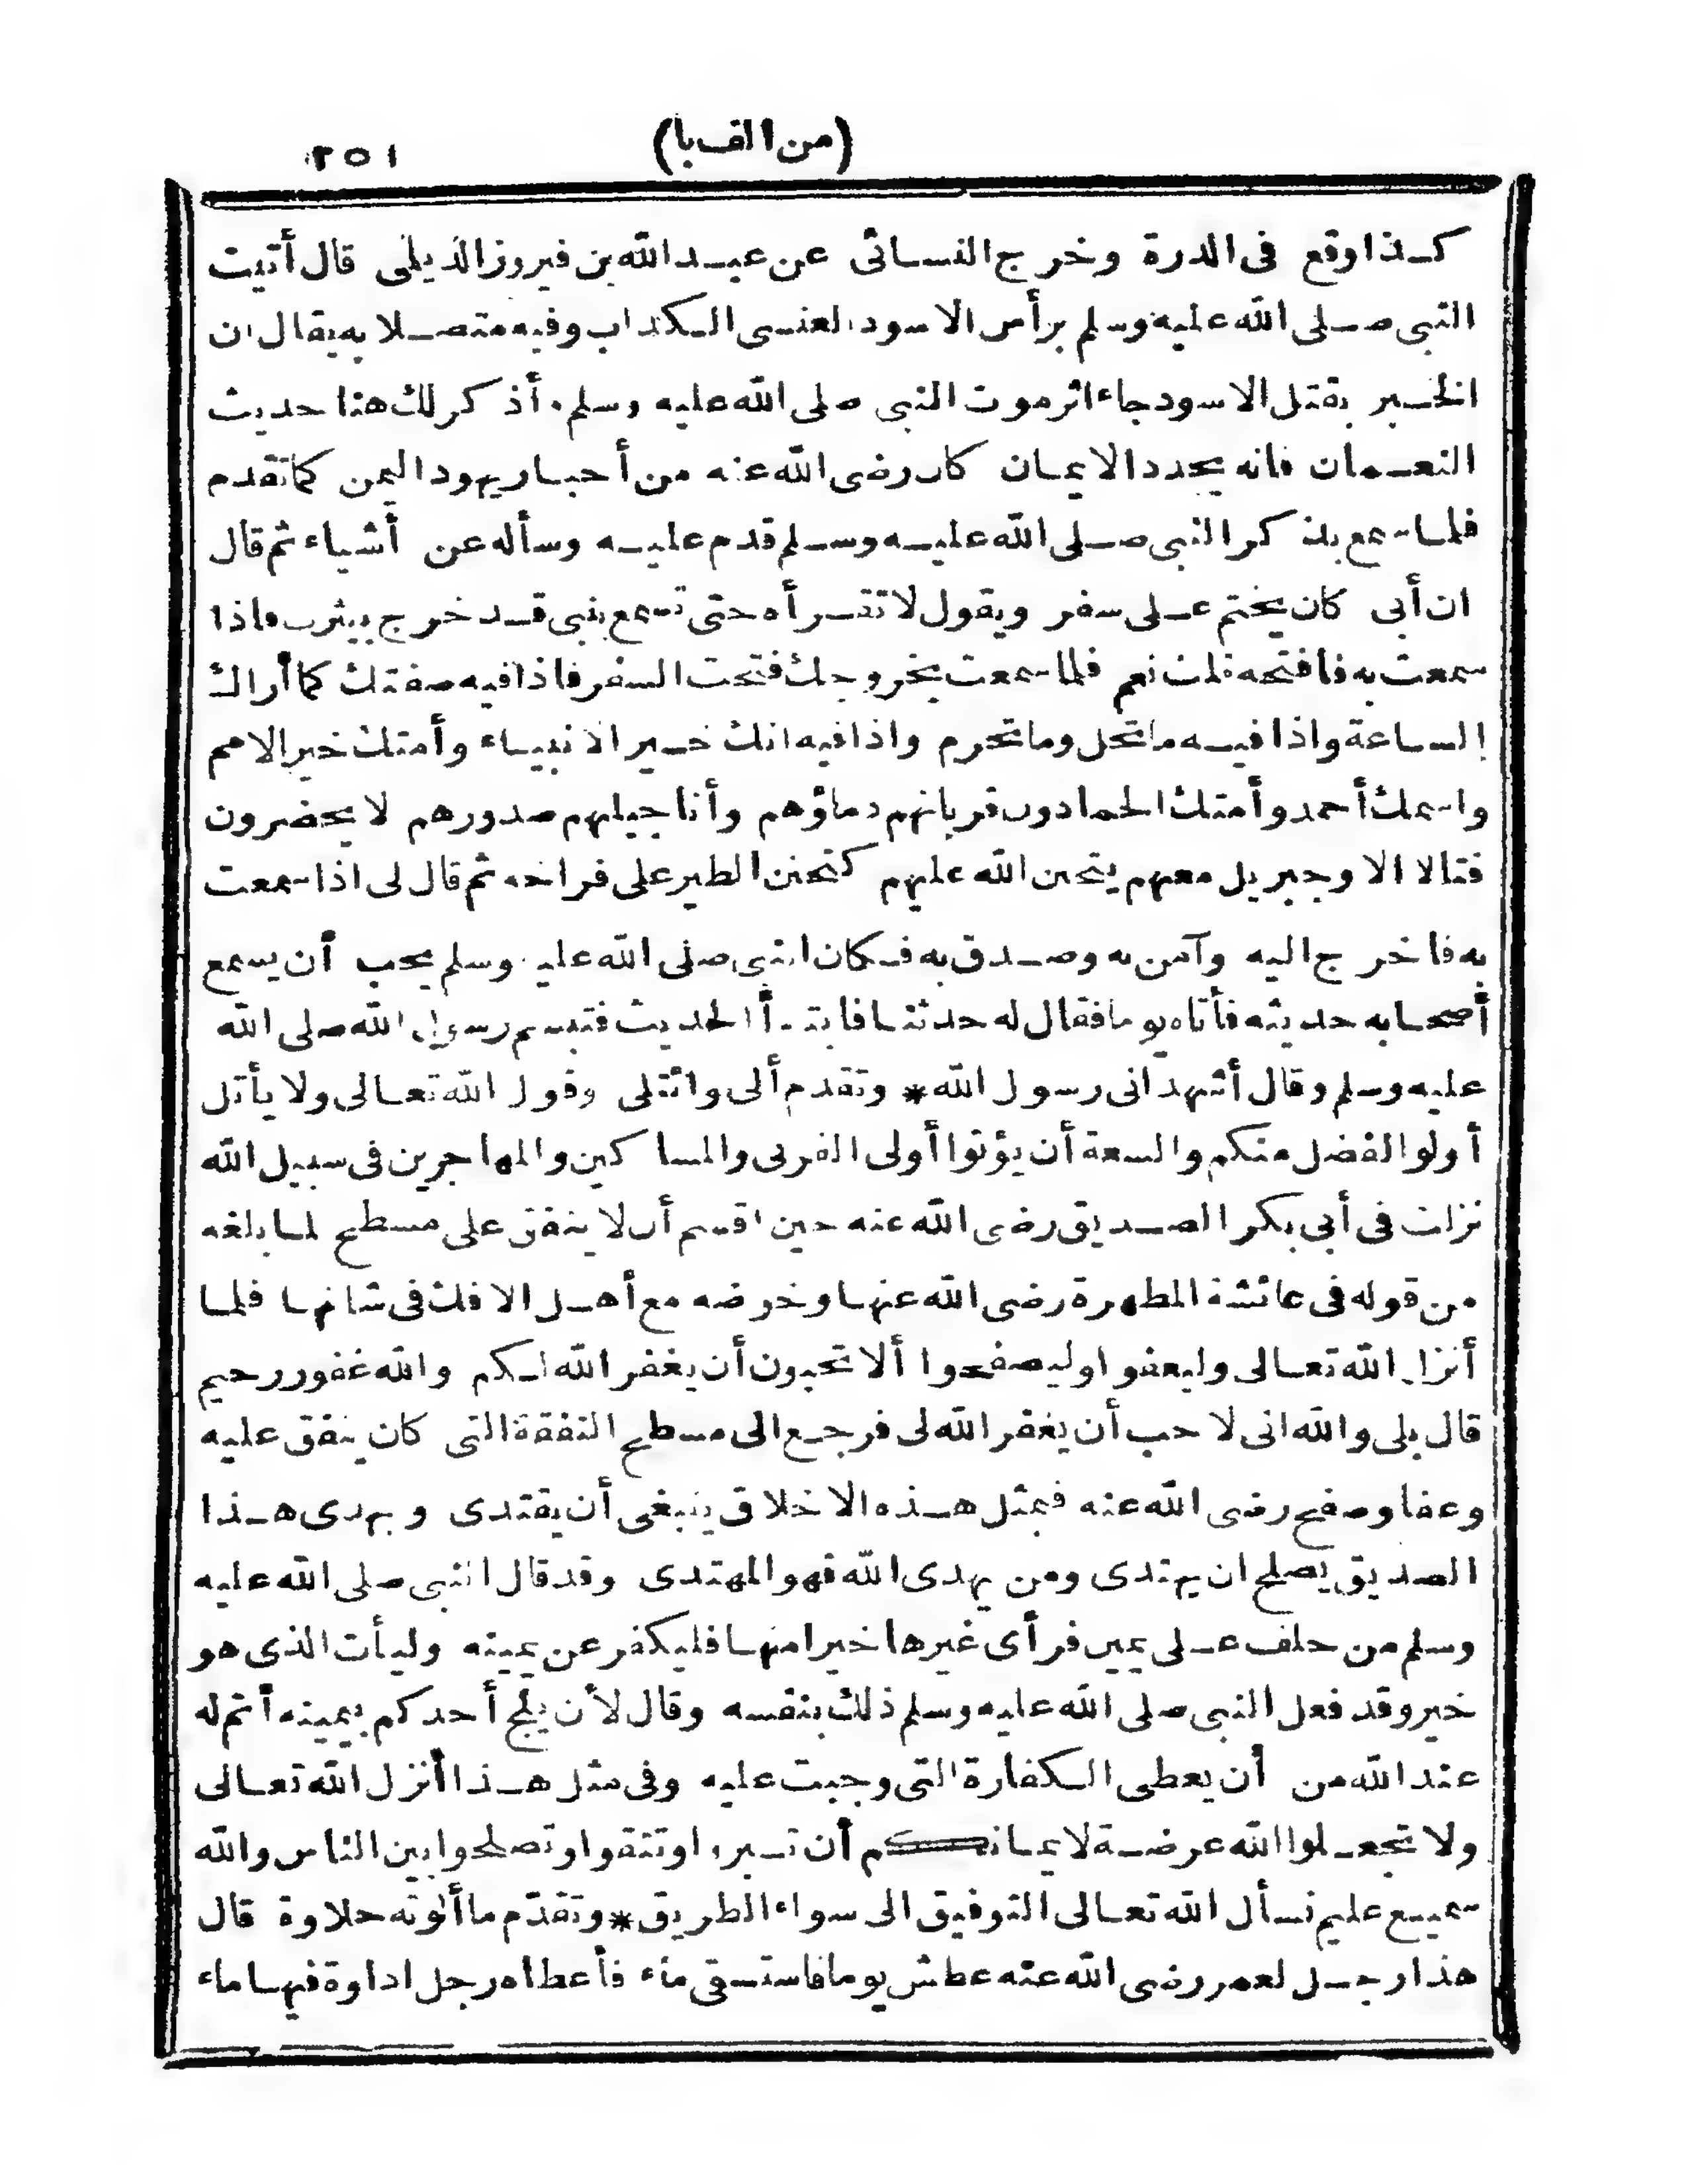 (من الف با)
٢٥١
كذا وقع فى الدرة وخرج النسائى عن عبد الله بن فيروز الديلمى قال أتيت
النبى صلى الله عليه وسلم برأس الاسود العنسى الكذاب وفيه متصلا به يقال ان
الخبر بقتل الاسود جاء اثر موت النبى صلى الله عليه وسلم. أذكر لك هنا حديث
النعمان فانه يجدد الايمان كان رضى الله عنه من أحبار يهود اليمن كما تقدم
فلما سمع بذكر النبى صلى الله عليه وسلم قدم عليه وسأله عن أشياء ثم قال
ان أبى كان يختم على سفر ويقول لا تقرأه حتى تسمع بنبى قد خرج بيثرب فاذا
سمعت به فافتحه قلت نعم فلما سمعت بخروجك فتحت السفر فاذا فيه صفتك كما أراك
الساعة واذا فيه ما تحل وما تحرم واذا فيه انك خير الانبياء وأمتك خير الامم
واسمك أحمد وأمتك الحمادون قربانهم دماؤهم وأناجيلهم صدورهم لا يحضرون
قتالا الا وجبريل معهم يتحنن الله عليهم كتحنن الطير على فراخه ثم قال لى اذا سمعت
به فاخرج اليه وآمن به وصدق به فكان النبى صلى الله عليه وسلم يحب أن يسمع
أصحابه حديثه فأتاه يوما فقال له حدثنا فابتدأ الحديث فتبسم رسول الله صلى الله
عليه وسلم وقال أشهد انى رسول الله * وتقدم ألى وائتلى وقول الله تعالى ولا يأتل
أولو الفضل منكم والسعة أن يؤتوا أولى القربى والمساكين والمهاجرين فى سبيل الله
نزلت فى أبى بكر الصديق رضى الله عنه حين اقسم أن لا ينفق على مسطح لما بلغه
من قوله فى عائشة المطهرة رضى الله عنها وخوضه مع أهل الافك فى شانها فلما
أنزل الله تعالى وليعفوا وليصفحوا ألا تحبون أن يغفر الله لكم والله غفور رحيم
قال بلى والله انى لاحب أن يغفر الله لى فرجع الى مسطح النفقة التى كان ينفق عليه
وعفا وصفح رضى الله عنه فبمثل هذه الاخلاق ينبغى أن يقتدى وبهدى هذا
الصديق يصلح ان يهتدى ومن يهدى الله فهو المهتدى وقد قال النبى صلى الله عليه
وسلم من حلف على يمين فرأى غيرها خيرا منها فليكفر عن يمينه وليأت الذى هو
خير وقد فعل النبى صلى الله عليه وسلم ذلك بنفسه وقال لأن يلج أحدكم بيمينه أثم له
عند الله من أن يعطى الكفارة التى وجبت عليه وفى مثل هذا أنزل الله تعالى
ولا تجعلوا الله عرضة لايمانكم أن تبروا وتتقوا وتصلحوا بين الناس والله
سميع عليم نسأل الله تعالى التوفيق الى سواء الطريق * وتقدّم ما ألوته حلاوة قال
هذا رجل لعمر رضى الله عنه عطش يوما فاستسقى ماء فأعطاه رجل اداوة فيها ماء